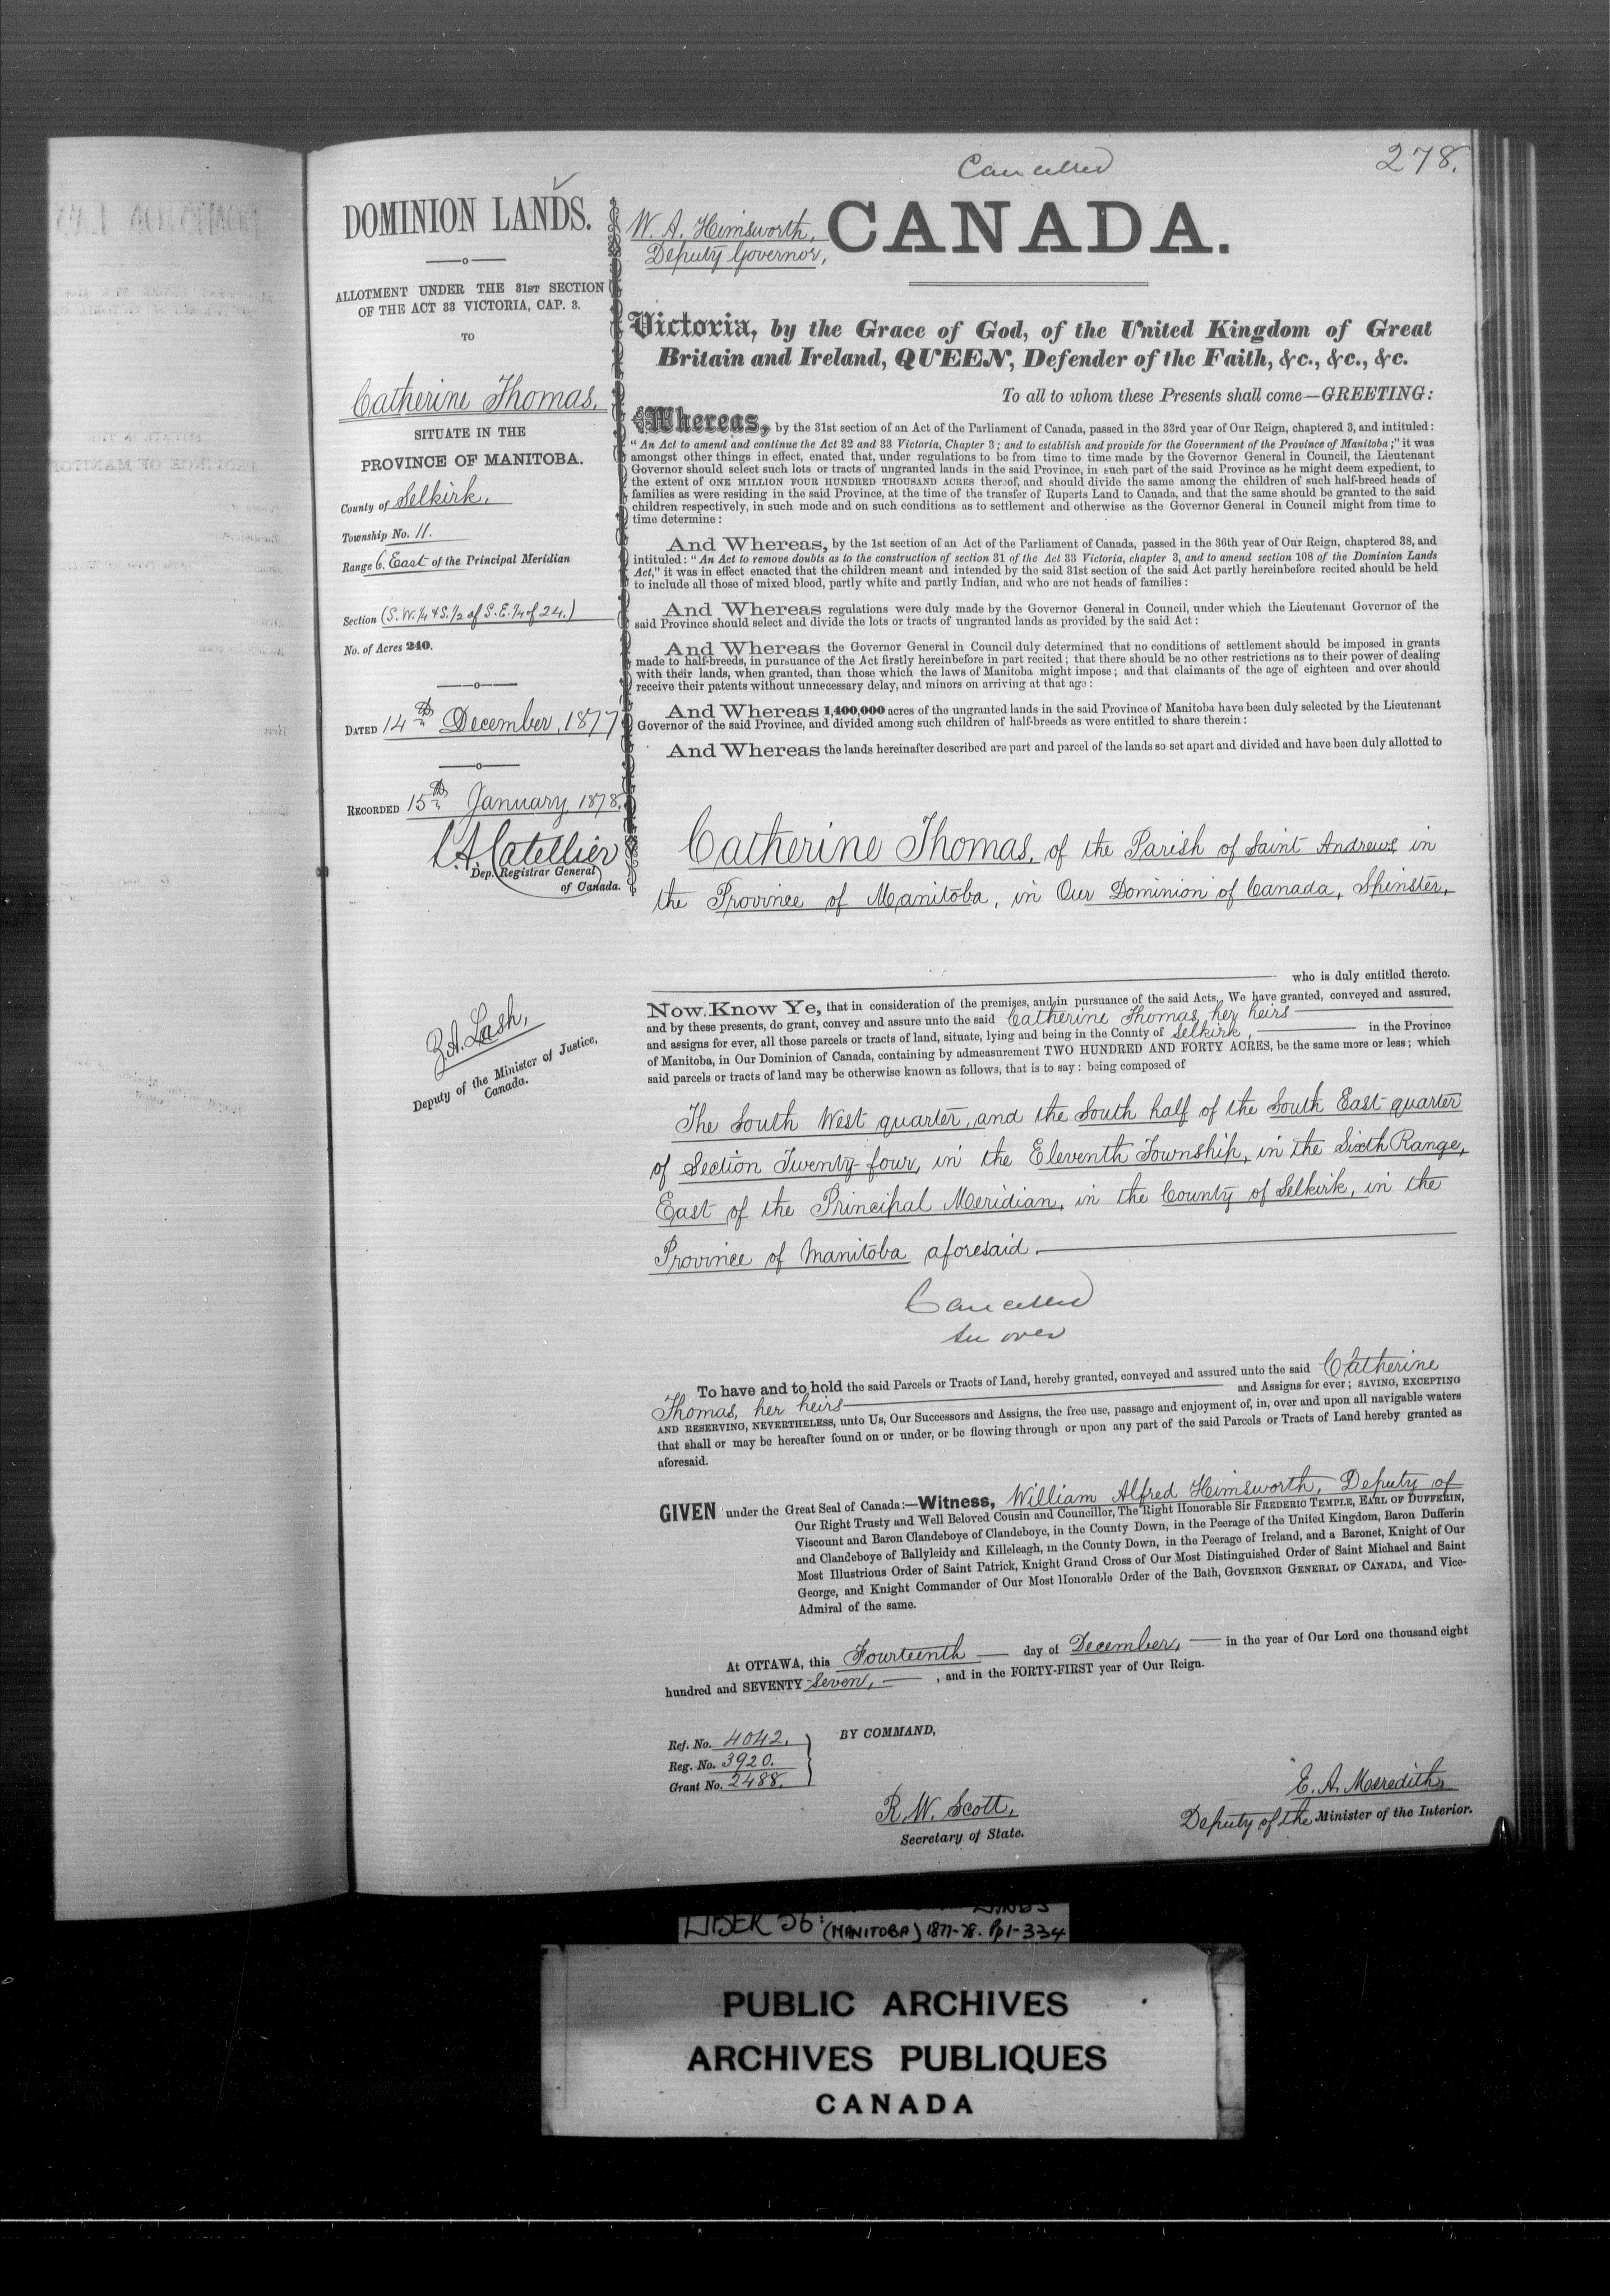 Cancelled
278.
DOMINION LANDS.
ALLOTMENT UNDER THE 31ST SECTION
OF THE ACT 33 VICTORIA, CAP. 3.
TO
Catherine Thomas,
SITUATE IN THE
PROVINCE OF MANITOBA.
County of Selkirk,
Township No. 11.
Range 6. East of the Principal Meridian
Section (S.W.1/4 & S.1/2 of S.E.1/4 of 24.)
No. of Acres 240.
DATED 14th December, 1877
RECORDED 15th January, 1878,
L.A. Catellier
Dep. Registrar General
of Canada.
Z.A. Lash,
Deputy of the Minister of Justice,
Canada.
W. A. Himsworth,
Deputy Governor,
CANADA.
Victoria, by the Grace of God, of the United Kingdom of Great
Britain and Ireland, QUEEN, Defender of the Faith, &c., &c., &c.
To all to whom these Presents shall come—GREETING:
Whereas, by the 31st section of an Act of the Parliament of Canada, passed in the 33rd year of Our Reign, chaptered 3, and intituled:
"An Act to amend and continue the Act 32 and 33 Victoria, Chapter 3; and to establish and provide for the Government of the Province of Manitoba;" it was
amongst other things in effect, enated that, under regulations to be from time to time made by the Governor General in Council, the Lieutenant
Governor should select such lots or tracts of ungranted lands in the said Province, in such part of the said Province as he might deem expedient, to
the extent of ONE MILLION FOUR HUNDRED THOUSAND ACRES thereof, and should divide the same among the children of such half-breed heads of
families as were residing in the said Province, at the time of the transfer of Ruperts Land to Canada, and that the same should be granted to the said
children respectively, in such mode and on such conditions as to settlement and otherwise as the Governor General in Council might from time to
time determine:
And Whereas, by the 1st section of an Act of the Parliament of Canada, passed in the 36th year of Our Reign, chaptered 38, and
intituled: "An Act to remove doubts as to the construction of section 31 of the Act 33 Victoria, chapter 3, and to amend section 108 of the Dominion Lands
Act," it was in effect enacted that the children meant and intended by the said 31st section of the said Act partly hereinbefore recited should be held
to include all those of mixed blood, partly white and partly Indian, and who are not heads of families:
And Whereas regulations were duly made by the Governor General in Council, under which the Lieutenant Governor of the
said Province should select and divide the lots or tracts of ungranted lands as provided by the said Act:
And Whereas the Governor General in Council duly determined that no conditions of settlement should be imposed in grants
made to half-breeds, in pursuance of the Act firstly hereinbefore in part recited; that there should be no other restrictions as to their power of dealing
with their lands, when granted, than those which the laws of Manitoba might impose; and that claimants of the age of eighteen and over should
receive their patents without unnecessary delay, and minors on arriving at that age:
And Whereas 1,400,000 acres of the ungranted lands in the said Province of Manitoba have been duly selected by the Lieutenant
Governor of the said Province, and divided among such children of half-breeds as were entitled to share therein:
And Whereas the lands hereinafter described are part and parcel of the lands so set apart and divided and have been duly allotted to
Catherine Thomas, of the Parish of Saint Andrews in
the Province of Manitoba, in Our Dominion of Canada, Spinster,
who is duly entitled thereto.
Now Know Ye, that in consideration of the premises, and in pursuance of the said Acts, We have granted, conveyed and assured,
and by these presents, do grant, convey and assure unto the said Catherine Thomas, her heirs
and assigns for ever, all those parcels or tracts of land, situate, lying and being in the County of Selkirk, in the Province
of Manitoba, in Our Dominion of Canada, containing by admeasurement TWO HUNDRED AND FORTY ACRES, be the same more or less; which
said parcels or tracts of land may be otherwise known as follows, that is to say: being composed of
The South West quarter, and the South half of the South East quarter
of Section Twenty-four, in the Eleventh Township, in the Sixth Range,
East of the Principal Meridian, in the County of Selkirk, in the
Province of Manitoba aforesaid.
Cancelled
See over
To have and to hold the said Parcels or Tracts of Land, hereby granted, conveyed and assured unto the said Catherine
Thomas, her heirs and Assigns for ever; SAVING, EXCEPTING
AND RESERVING, NEVERTHELESS, unto Us, Our Successors and Assigns, the free use, passage and enjoyment of, in, over and upon all navigable waters
that shall or may be hereafter found on or under, or be flowing through or upon any part of the said Parcels or Tracts of Land hereby granted as
aforesaid.
GIVEN under the Great Seal of Canada:—Witness, William Alfred Himsworth, Deputy of
Our Right Trusty and Well Beloved Cousin and Councillor, The Right Honorable Sir FREDERIC TEMPLE, EARL OF DUFFERIN,
Viscount and Baron Clandeboye of Clandeboye, in the County Down, in the Peerage of the United Kingdom, Baron Dufferin
and Clandeboye of Ballyleidy and Killeleagh, in the County Down, in the Peerage of Ireland, and a Baronet, Knight of Our
Most Illustrious Order of Saint Patrick, Knight Grand Cross of Our Most Distinguished Order of Saint Michael and Saint
George, and Knight Commander of Our Most Honorable Order of the Bath, GOVERNOR GENERAL OF CANADA, and Vice-
Admiral of the same.
At OTTAWA, this Fourteenth day of December, in the year of Our Lord one thousand eight
hundred and SEVENTY Seven, , and in the FORTY-FIRST year of Our Reign.
Ref. No. 4042.
Reg. No. 3920.
Grant No. 2488.
BY COMMAND,
R. W. Scott,
Secretary of State.
E. A. Meredith,
Deputy of the Minister of the Interior.
LIBER 56: LANDS
(MANITOBA) 1877-78. Pp1-334
PUBLIC ARCHIVES
ARCHIVES PUBLIQUES
CANADA